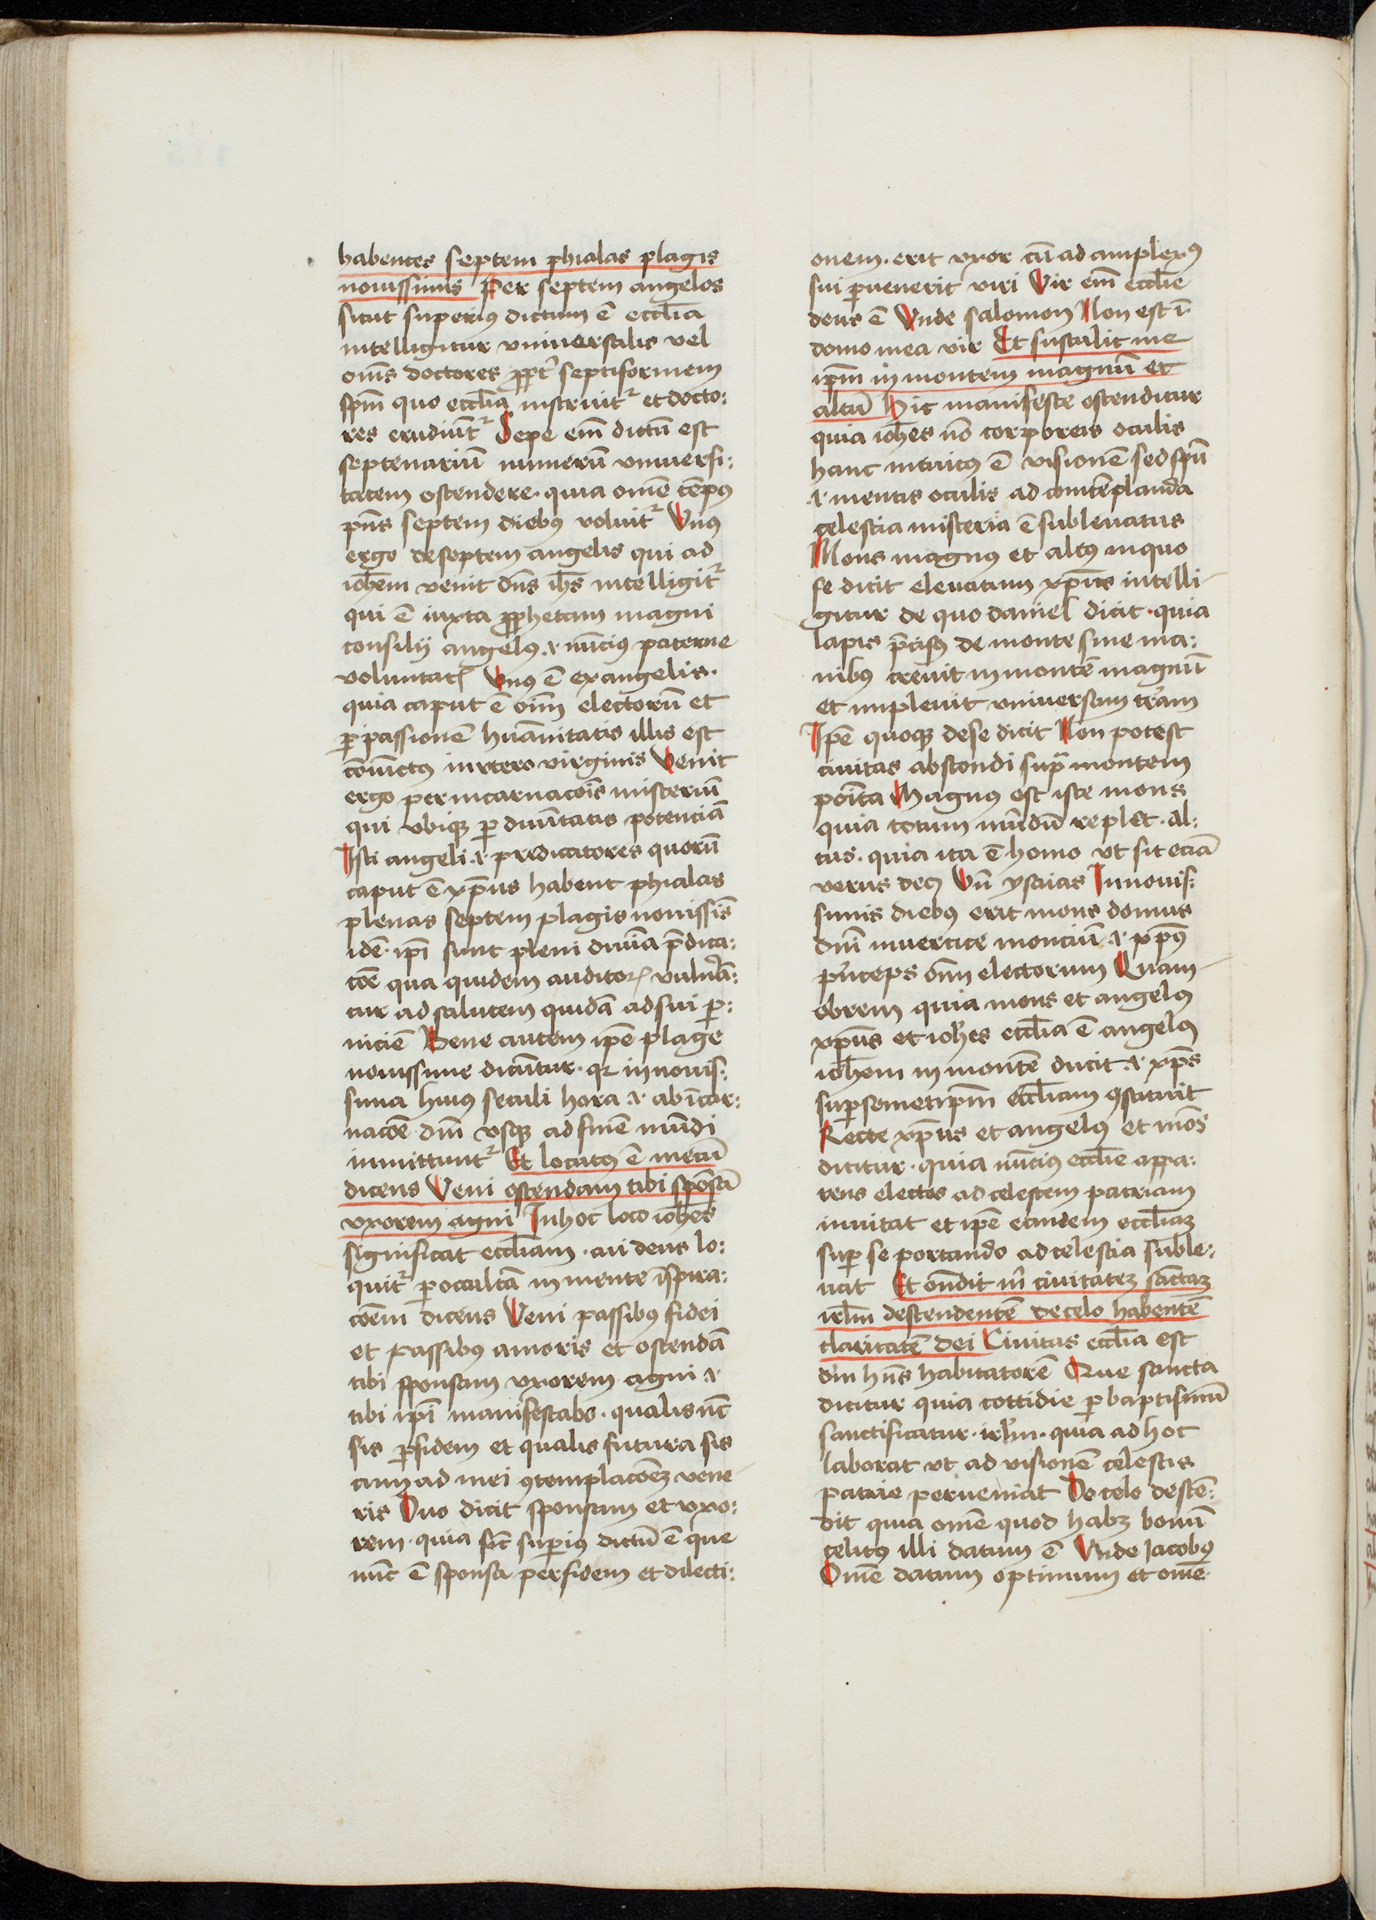 habentes septem phialas plagis
nouissimis Per septem angelos
sicut superiꝰ dictum ē eccl̄ia
intelligitur vniuersalis vel
om̄s doctores ꝓpt̄ septiformem
sp̄m quo eccl̄ia instruit᷑ et docto:
res erudiūt᷑ Sepe em̄ dictū est
septenariū numerū vniuersi:
tatem ostendere · quia om̄e tēpꝰ
p̄ns septem diebꝰ voluit᷑ Vnꝰ
ergo de septem angelis qui ad
ioh̄em venit dn̄s ih̄s intelligit᷑
qui ē iuxta ꝓphetam magni
consilij angelꝰ ⁊ nūciꝰ paterne
voluntatꝭ Vnꝰ ē ex angelis ·
quia caput ē oīm electorū et
ꝑ passionē humānitatis illis est
cōiunctꝰ in vtero virginis Venit
ergo per incarnacōis misteriū
qui vbiqꝫ ꝑ diuīnitatis potenciā
Isti angeli ⁊ predicatores quorū
caput ē xp̄us habent phialas
plenas septem plagis nouissīs
idē · ip̄i sunt pleni diuīa p̄dica:
cōe qua quidem auditoꝝ vulnerā:
tur ad salutem quidā ad sui ꝑ:
niciē Bene autem ip̄e plage
nouissime dicūntur · qꝛ in nouis:
sima huius seculi hora ⁊ ab īcar:
nacōe dn̄i vsqꝫ ad finē mūndi
inmittunt᷑ Et locutꝰ ē mecū
dicens Veni ostendam tibi spōsā
vxorem agni In hoc loco ioh̄es
significat eccl̄iam · cui deus lo:
quit᷑ ꝑ occultā in mente īspira:
cōem dicens Veni passibꝰ fidei
et passibus amoris et ostendā
tibi sponsam vxorem agni ⁊
tibi ip̄i manifestabo · qualis nūc
sis ꝑ fidem et qualis futura sis
cum ad mei ꝯtemplacōeꝫ vene
ris Quo dicit sponsam et vxo:
rem · quia sic̄ suꝑiꝰ dictū ē que
nūc ē sponsa per fidem et dilecti:
onem · erit vxor cū ad amplexꝰ
sui ꝑuenerit viri Vir em̄ eccl̄ie
deus ē Vnde salomon Non est ī
domo mea vir Et sustulit me
ip̄m in montem magnū et
altū Hic manifeste ostenditur
quia ioh̄es nō corporeis oculis
hanc intuitꝰ ē visionē sed sp̄u
⁊ mentis oculis ad contēplanda
celestia misteria ē subleuatus
Mons magnꝰ et altꝰ in quo
se dicit eleuatum xp̄us intelli
gitur de quo daniel dicit · quia
lapis p̄cisꝰ de monte sine ma:
nibꝰ creuit in montē magnū
et impleuit vniuersam tr̄am
Ip̄e quoqꝫ de se dicit Non potest
ciuitas abscondi supra montem
poīta Magnus est iste mons
quia totum mūndū replet · al:
tus · quia ita ē homo vt sit eciā
verus deꝰ Vn̄ ysaias In nouis:
simis diebꝰ erit mons domus
dn̄i in vertice monciū ⁊ xp̄ꝰ
p̄nceps om̄ electorum Quam
obrem quia mons et angelꝰ
xp̄us et ioh̄es eccl̄ia ē angelꝰ
ioh̄em in montē ducit ⁊ xp̄s
suꝑ semetip̄m eccl̄iam ꝯstituit
Recte xp̄us et angelꝰ et mōs
dicitur · quia nūciꝰ eccl̄ie appa:
rens electos ad celestem patriam
inuitat et ip̄e eandem eccl̄iaꝫ
suꝑ se portando ad celestia suble:
uat Et on̄dit m̄ ciuitateꝫ sāctaꝫ
irl̄m descendentē de celo habentē
claritatē dei Ciuitas eccl̄ia est
dm̄ hn̄s habitatorē Que sancta
dicitur quia cottidie ꝑ baptismū
sanctificatur · irl̄m · quia ad hoc
laborat vt ad visionē celestis
patrie perueniat De celo descē:
dit quia om̄e quod habꝫ bonū
celitꝰ illi datum ē Vnde Jacobꝰ
Om̄e datum optimum et om̄e ·